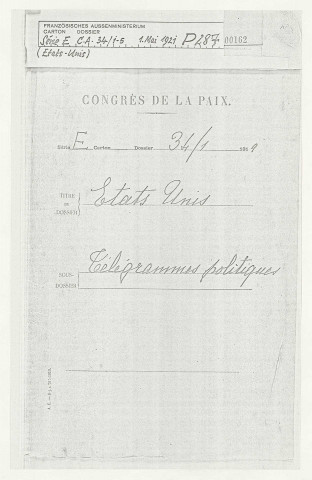 FRANZÖSISCHES AUSSENMINISTERIUM
CARTON DOSSIER
Série E C.A. 34/1-5 1. Mai 1921 P 487 00162
(Etats-Unis)
CONGRÈS DE LA PAIX.
Série E Carton Dossier 34/1 191 9
TITRE DU DOSSIER Etats Unis
SOUS-DOSSIER Télégrammes politiques